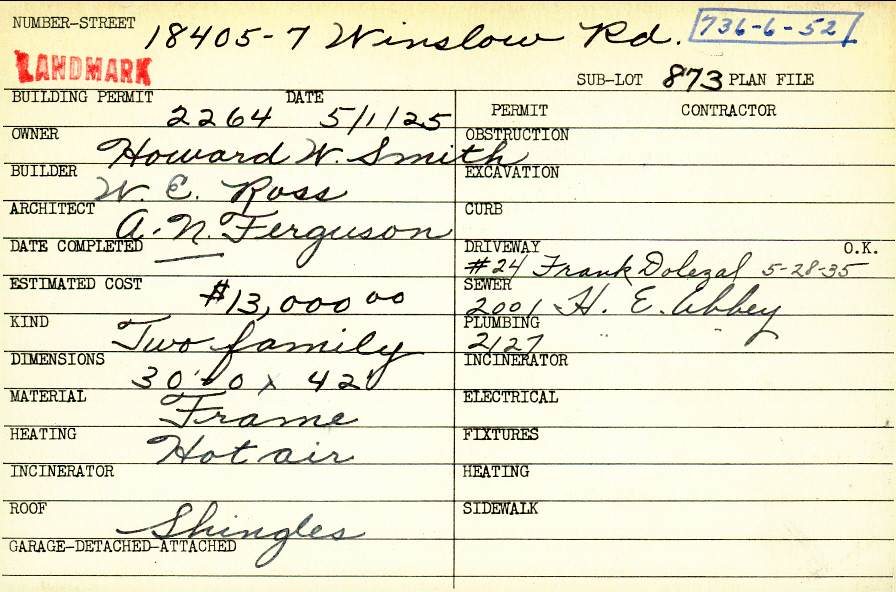 NUMBER-STREET 18405-7 Winslow Rd. 736-6-52
LANDMARK
SUB-LOT 873 PLAN FILE
BUILDING PERMIT 2264 DATE 5/1/25
OWNER Howard W. Smith
BUILDER W. E. Ross
ARCHITECT A. N. Ferguson
DATE COMPLETED —
ESTIMATED COST $13,000 00
KIND Two family
DIMENSIONS 30'-0 x 42'
MATERIAL Frame
HEATING Hot air
INCINERATOR
ROOF Shingles
GARAGE-DETACHED-ATTACHED
PERMIT CONTRACTOR
OBSTRUCTION
EXCAVATION
CURB
DRIVEWAY O.K.
#24 Frank Dolezal 5-28-35
SEWER
2001 H. E. Abbey
PLUMBING
2127 " "
INCINERATOR
ELECTRICAL
FIXTURES
HEATING
SIDEWALK